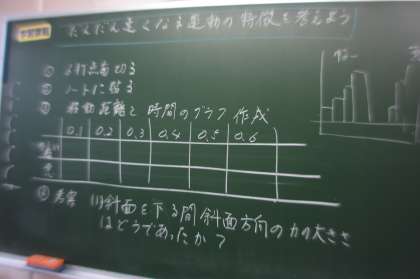 学習課題 だんだん速くなる運動の特徴を考えよう
① 6打点毎切る
② ノートに貼る
③ 移動距離と時間のグラフ作成
0.1 0.2 0.3 0.4 0.5 0.6
④ 考察 (1)斜面を下る間斜面方向の力の大きさ
はどうであったか?